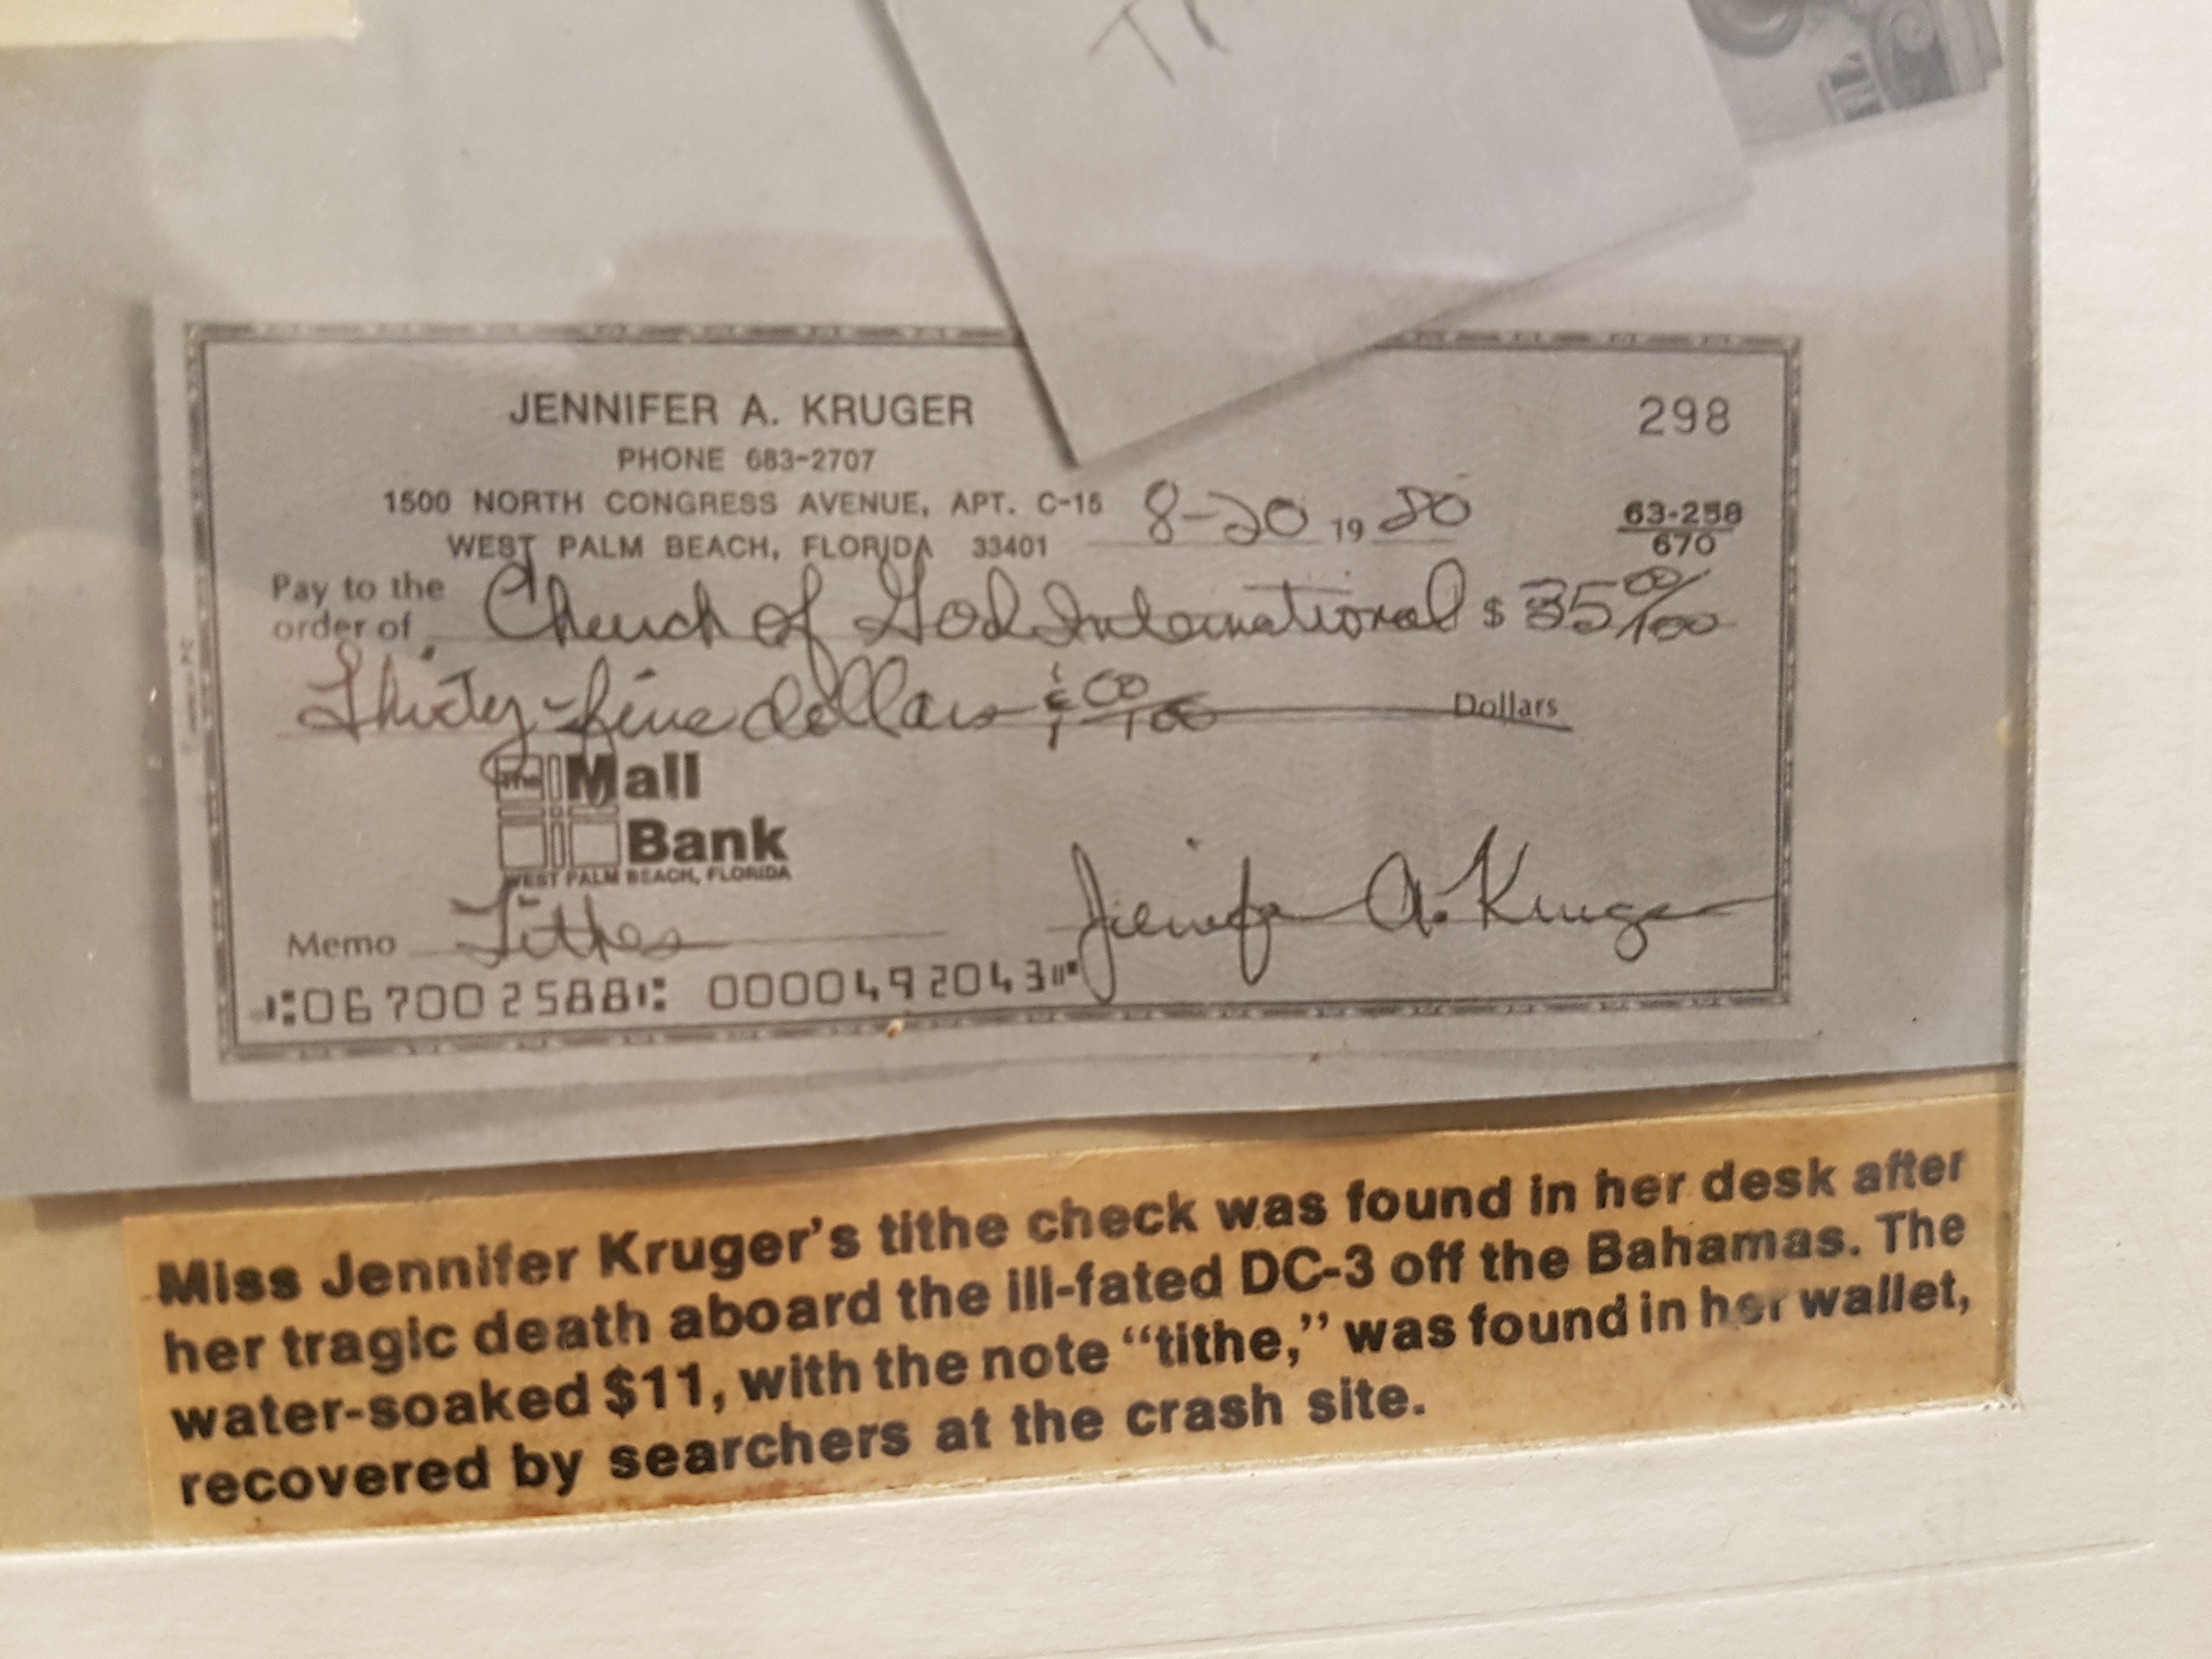 TI
JENNIFER A. KRUGER
298
PHONE 683-2707
1500 NORTH CONGRESS AVENUE, APT. C-15
8-20 19 80
63-258
670
WEST PALM BEACH, FLORIDA 33401
Pay to the
order of
Church of God International $ 35 00/100
Thirty-five dollars & 00/100 Dollars
The Mall
Bank
WEST PALM BEACH, FLORIDA
Memo Tithes
Jennifer A. Kruger
⑆067002588⑆ 0000492043⑈
Miss Jennifer Kruger's tithe check was found in her desk after
her tragic death aboard the ill-fated DC-3 off the Bahamas. The
water-soaked $11, with the note “tithe,” was found in her wallet,
recovered by searchers at the crash site.